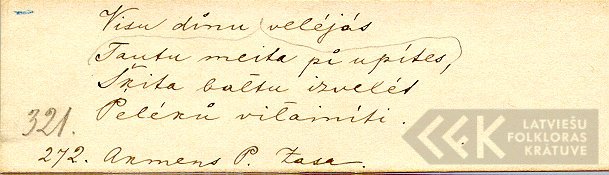 Visu dinu velejás
Tautu meita pi upites,
Škita baltu izvelét
Peléků vilainiti.
321.
272. Akmens P. Zasa.
LATVIEŠU
FOLKLORAS
KRĀTUVE